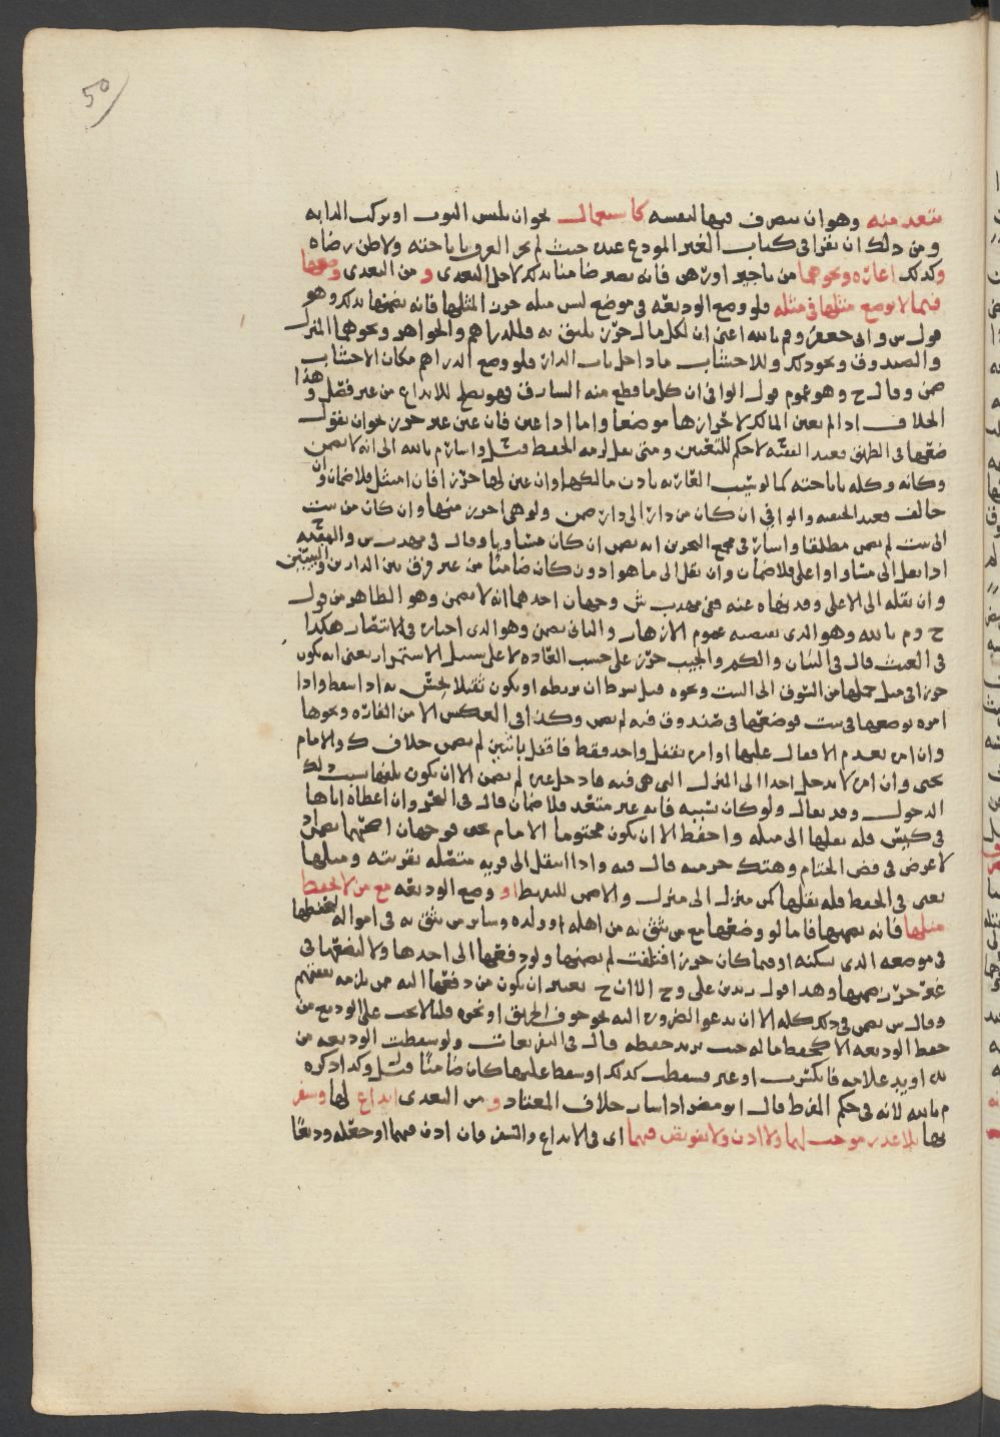 50
بتعد منه وهو ان يتصرف فيها لنفسه كاستعمال نحو ان يلبس الثوب او يركب الدابه
ومن ذلك ان يقرا في كتاب الغير المودع عنده حيث لم يجر العرف باباحته ولا ظن رضاه
وكذلك اعاره ونحوهما من تاجير او رهن فانه يصير ضامنا بذلك لاجل التعدى و من التعدى وضعها
فيما لا يوضع مثلها في مثله فلو وضع الوديعه في موضع ليس مثله حرزا لمثلها فانه يضمنها بذلك وهو
قول س وابي جعفر و م بالله اعنى ان لكل مال حرز يليق به فللدراهم والجواهر ونحوهما المنزل
والصندوق ونحو ذلك وللاخشاب ما داخل باب الدار فلو وضع الدراهم مكان الاخشاب
ضمن وقال ح وهو عموم قول الوافي ان كل ما قطع منه السارق فهو يصلح للايداع من غير فصل وهذا
الخلاف اذا لم يعين المالك لاحرازها موضعا واما اذا عين فان عين غير حرز نحو ان يقول
ضعها في الطريق فعند الفقيه لا حكم للتعيين ومتى نقل لزمه الحفظ قيل واشار م بالله الى انه لا يضمن
وكانه وكله باباحته كما لو سيب العاريه باذن مالكها وان عين لها حرزا فان امتثل فلا ضمان وان
خالف فعند الحنفيه والوافي ان كان من دار الى دار ضمن ولو هي احرز منها وان كان من بيت
الى بيت لم يضمن مطلقا واشار في مجمع البحرين انه يضمن ان كان مساويا وقال في مهذب س والمهقبه
اذا نقل الى مساو او اعلى فلا ضمان وان نقل الى ما هو ادون كان ضامنا من غير فرق بين الدارين والبيتين
وان نقله الى الاعلى وقد نهاه عنه ففي مهذب ش وجهان احدهما انه لا يضمن وهو الظاهر من قول
ح و م بالله وهو الذى يقتضيه عموم الازهار والثانى يضمن وهو الذى اختاره في الانتصار هكذا
في الغيث قال في البيان والكم والجيب حرز على حسب العاده لا على سبيل الاستمرار يعنى انه يكون
حرزا في مثل حملها من السوق الى البيت ونحوه قيل بشرط ان يربطه او يكون ثقيلا يحس به اذا سقط واذا
امره بوضعها في بيت فوضعها في صندوق فيه لم يضمن وكذا في العكس الا من الفاره ونحوها
وان امره بعدم الاقفال عليها او امره بقفل واحد فقط فاقفل باثنين لم يضمن خلاف ك والامام
يحيى وان امره لا يدخل احدا الى المنزل التى هي فيه فادخل غيره لم يضمن الا ان يكون تلفها بسبب ذلك
الدخول وقد يقال ولو كان بسببه فانه غير متعد فلا ضمان قال في البحر وان اعطاه اياها
في كيس فله نقلها الى مثله واحفظ الا ان يكون مختوما الامام يحيى فوجهان اصحهما يضمن اذ
لا غرض في فض الختام وهتك حرمته قال فيه واذا انتقل الى قريه متصله بقريته ومثلها
يعنى في الحفظ فله نقلها كمن منزل الى منزل والا ضمن للتفريط او وضع الوديعه مع من لا يحفظ
مثلها فانه يضمنها فاما لو وضعها مع من يثق به من اهله او ولده وساير من يثق به في امواله ليحفظها
في موضعه الذى يسكنه او فيما كان حرزا فتلفت لم يضمنها ولو دفعها الى احدها ولا ليضعها في
غير حرز ضمنها وهذا قول زيد بن على و ح الا ان ح يعتبر ان يكون من دفعها اليه ممن يلزمه نفقتهم
وقال س يضمن في ذلك كله الا ان يدعو الضروره اليه نحو خوف الحريق او نحوه قلنا لا يجب على الوديع من
حفظ الوديعه الا كحفظ ماله حيث يريد حفظه قال في التفريعات ولو سقطت الوديعه من
يده او يد غلامه فانكسرت او عثر فسقطت كذلك او سقط عليها كان ضامنا قيل وكذا ذكره
م بالله لانه في حكم المفرط قال ابو مضر اذا سار خلاف المعتاد و من التعدى ايداع لها وسفر
بها بلا عذر موجب لهما ولا اذن ولا تفويض فيهما اى في الايداع والسفر فان اذن فيهما او جعله وديعا